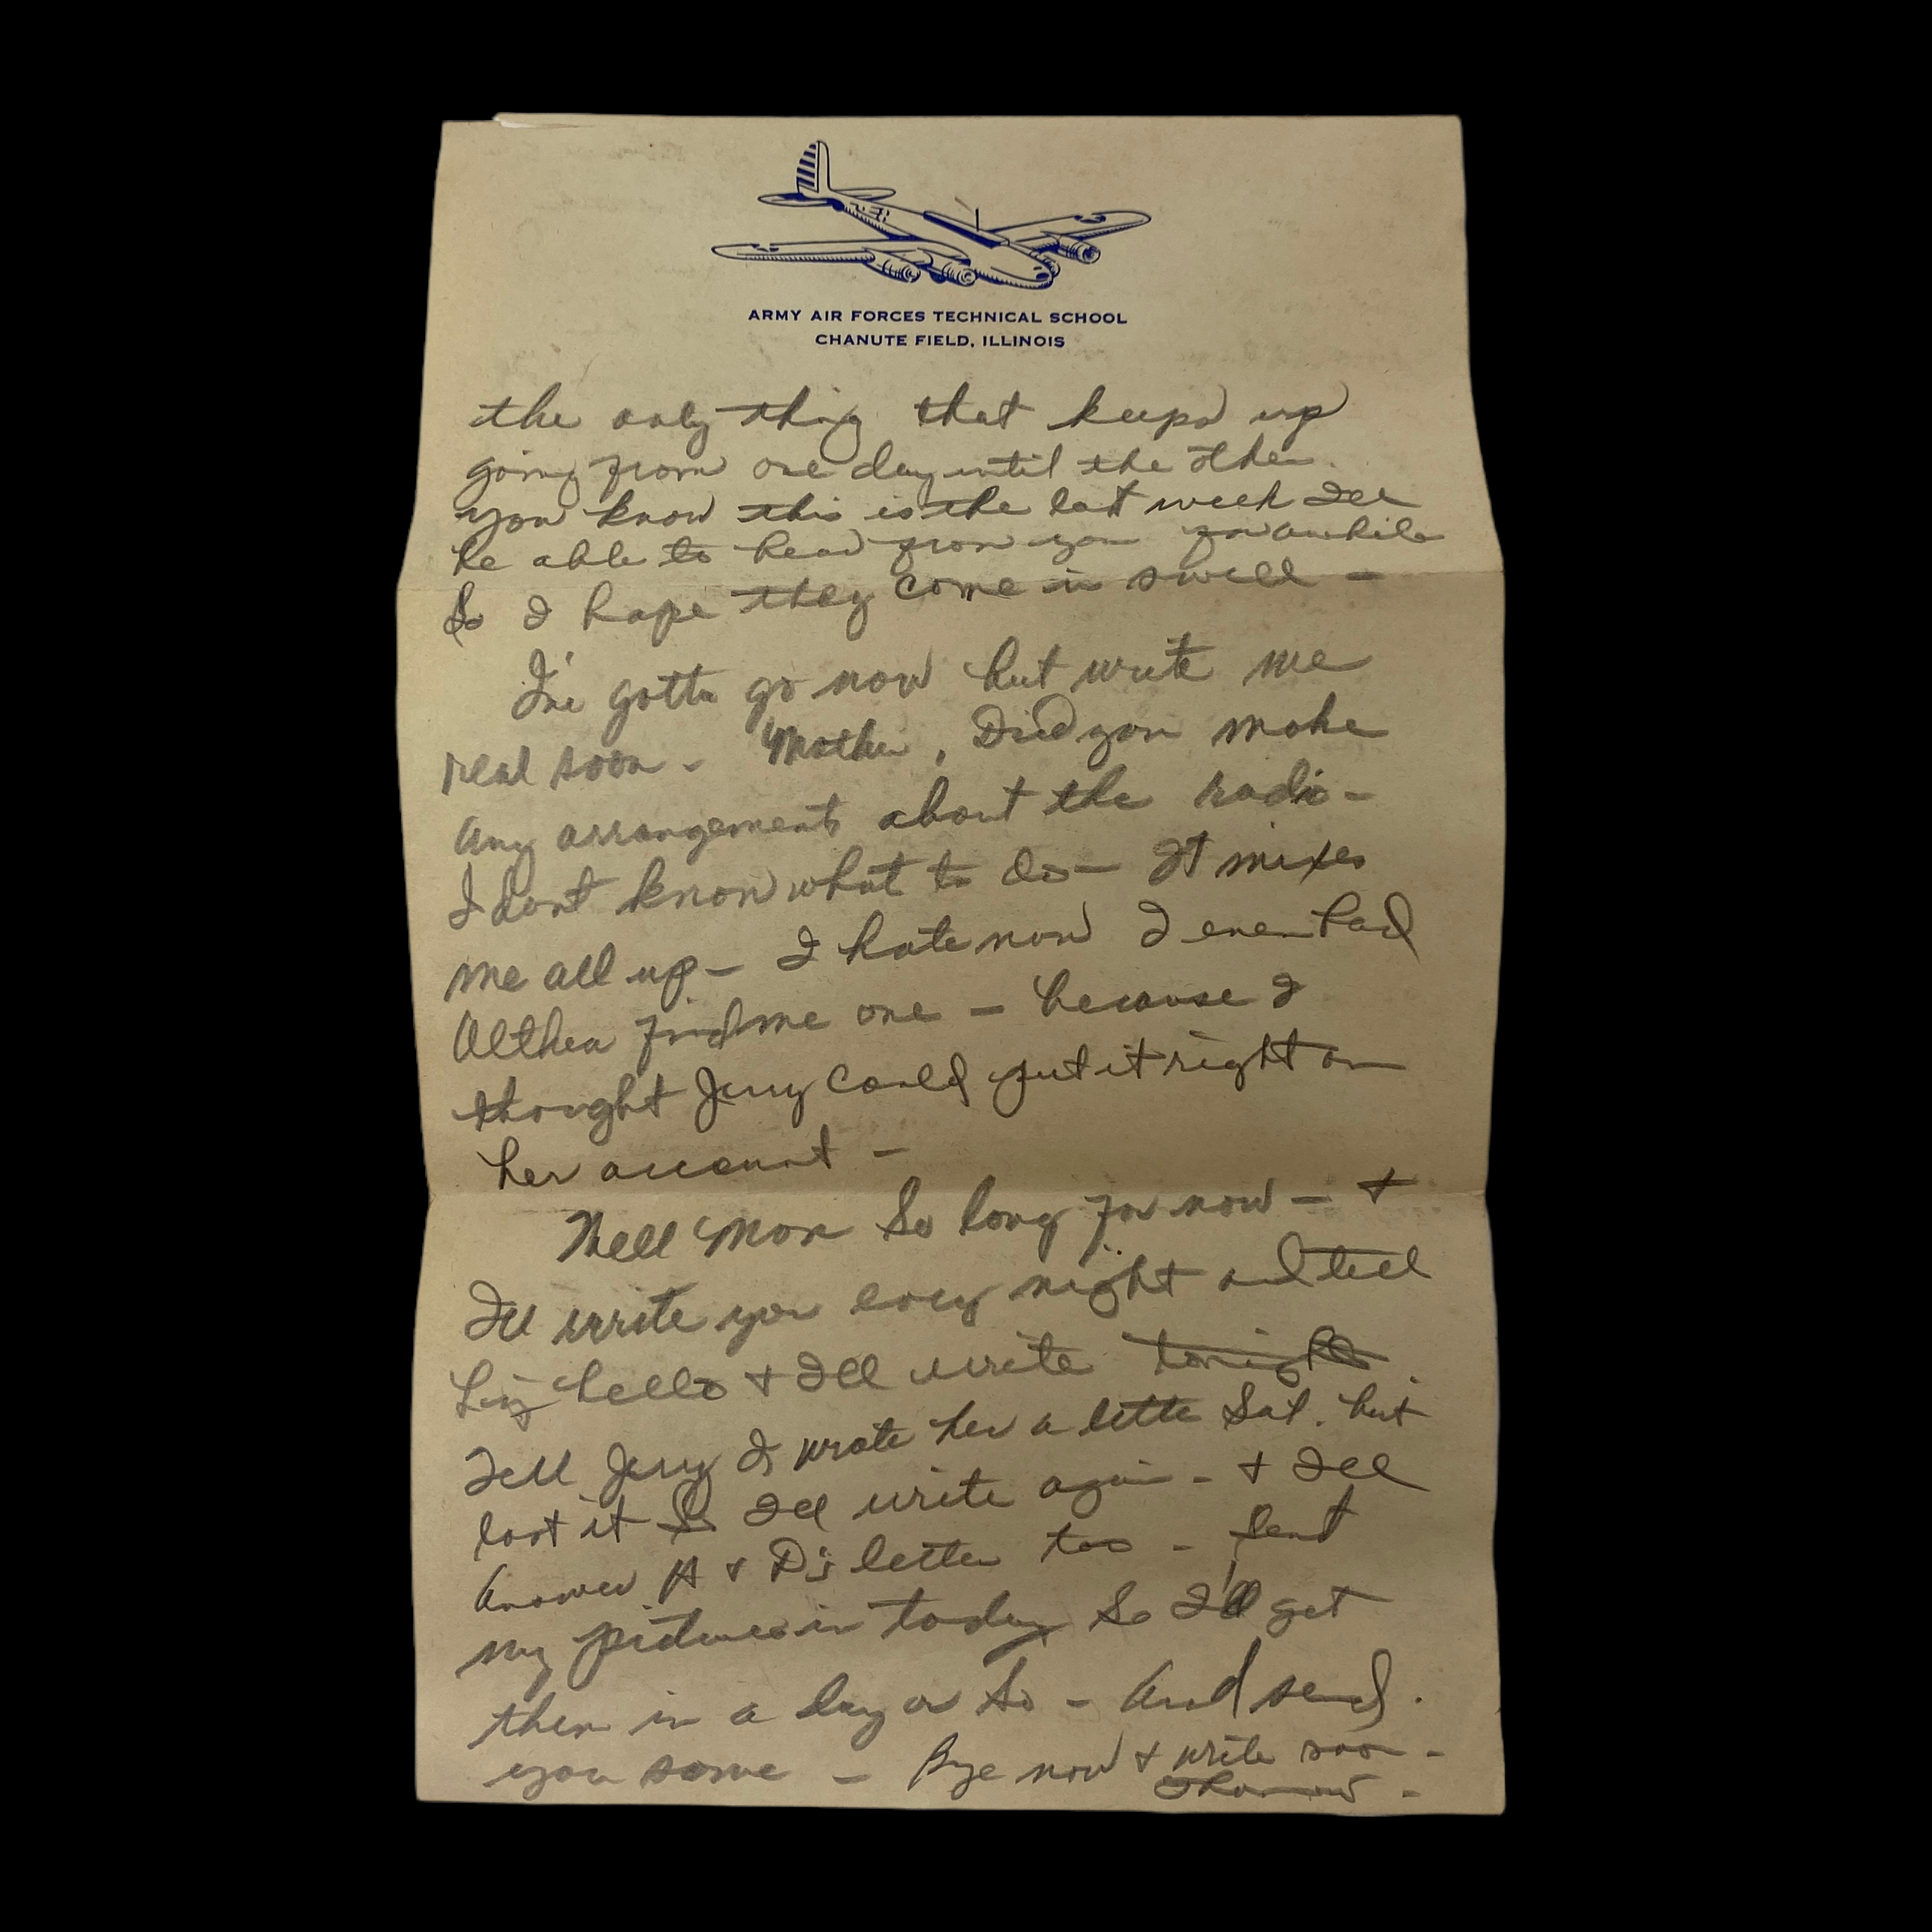 ARMY AIR FORCES TECHNICAL SCHOOL
CHANUTE FIELD, ILLINOIS
the only thing that keeps up
going from one day until the other.
you know this is the last week Ill
be able to hear from you for awhile
So I hope they come in swell -
I've gotta go now but write me
real soon - Mother, Did you make
any arrangements about the radio -
I dont know what to do - It mixes
me all up - I hate now I even had
Althea find me one - because I
thought Jerry could put it right on
her account -
Well Mom So long for now - +
Ill write you every night and tell
Liz hello + Ill write tonight
Tell Jerry I wrote her a letter Sat. but
lost it So Ill write again - + Ill
Answer A + D's letter too - Sent
my pictures in today So I'll get
them in a day or So - And send
you some - Bye now + write soon -